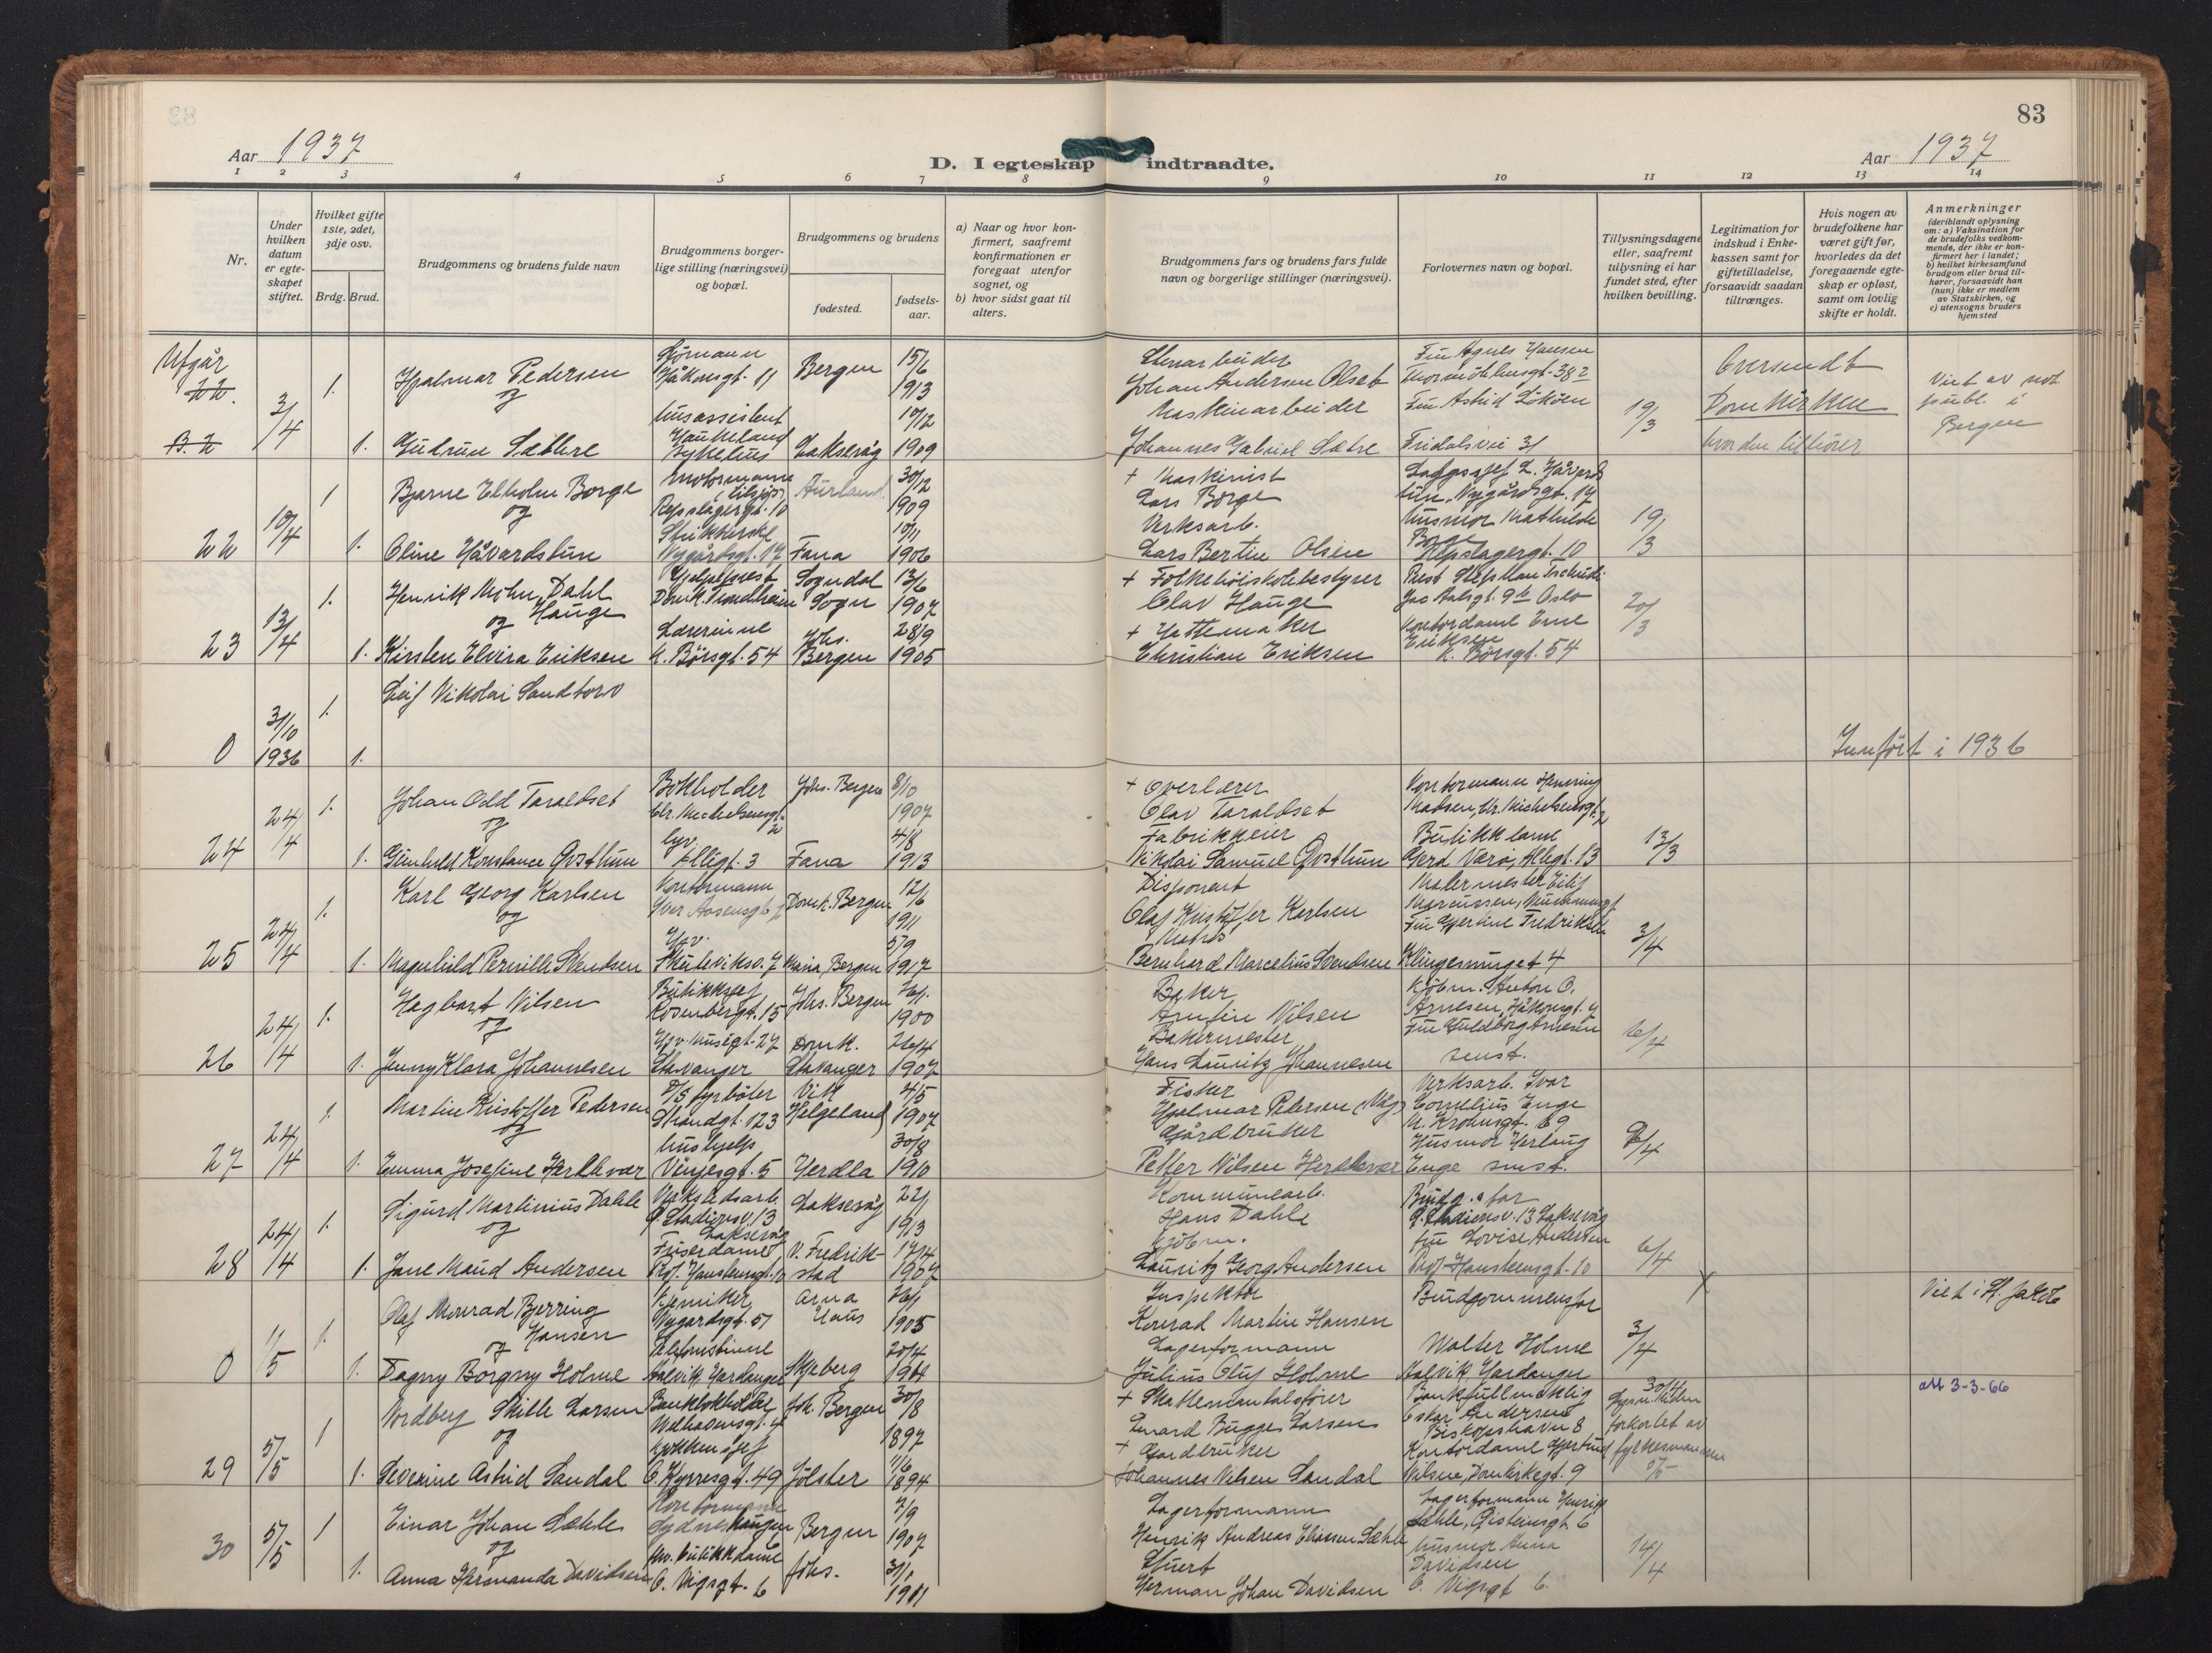 83
Aar 1937
D. I egteskap indtraadte.
Aar 1937
1 2 3 4 5 6 7 8 9 10 11 12 13 14
Nr.
Under hvilken datum er egteskapet stiftet.
Hvilket gifte 1ste, 2det, 3dje osv.
Brdg. Brud.
Brudgommens og brudens fulde navn
Brudgommens borgerlige stilling (næringsvei) og bopæl.
Brudgommens og brudens
fødested.
fødsels-aar.
a) Naar og hvor konfirmert, saafremt konfirmationen er foregaat utenfor sognet, og
b) hvor sidst gaat til alters.
Brudgommens fars og brudens fars fulde navn og borgerlige stillinger (næringsvei).
Forlovernes navn og bopæl.
Tillysningsdagene eller, saafremt tillysning ei har fundet sted, efter hvilken bevilling.
Legitimation for indskud i Enkekassen samt for giftetilladelse, forsaavidt saadan tiltrænges.
Hvis nogen av brudefolkene har været gift før, hvorledes da det foregaaende egteskap er opløst, samt om lovlig skifte er holdt.
Anmerkninger (deriblandt oplysning om: a) Vaksination for de brudefolks vedkommende, der ikke er konfirmert her i landet; b) hvilket kirkesamfund brudgom eller brud tilhører, forsaavidt han (hun) ikke er medlem av Statskirken, og c) utensogns bruders hjemsted
Utgår
22.
3/4
1. Hjalmar Pedersen
og
Håkonsgt. 11
Bergen 15/6 1913
Johan Andersen Olset
Fru Agnes Hansen
Thormøhlensgt. 38
Oversendt
Domkirken
hvor den tilhører
Viet av not publ. i Bergen
1. Gudrun Sæthre
Husassistent
Haukeland
Laksevåg 10/12 1909
Maskinarbeider
Johannes Gabriel Sætre
Fru Astrid
Fridalsvei 31
19/3
22
10/4
1 Bjarne Elholm Borge
og
Motormann
Repslagergt. 10
Aurland 30/12 1909
+ Maskinist
Lars Borge
Nygårdsgt. 17
1. Oline Håvardstun
Nygårdsgt. 17
Fana 10/11 1906
Verksarb.
Lars Bertin Olsen
Husmor Mathilde Borge
Repslagergt. 10
19/3
23
13/4
1. Henrik Mohn Dahl Hauge
og
Hjelpeprest
Domk. Trondheim
Sogndal Sogn 13/6 1907
+ Folkehøiskolebestyrer
Olav Hauge
Oslo
1. Kirsten Elvira Eriksen
Lærerinne
K. Børsgt. 54
Johs. Bergen 28/9 1905
+ Hattemaker
Christian Eriksen
Kontordame Erne Eriksen
K. Børsgt. 54
20/3
0
3/10 1936
1. Leif Nikolai Sandtorv
1.
Innført i 1936
24
24/4
1. Johan Odd Taraldset
og
Bokholder
Chr. Michelsensgt. 2
Johs. Bergen 8/10 1907
+ Overlærer
Olav Taraldset
Kontormann Henning
Madsen, Chr. Michelsensgt. 2
1. Gunhild Konstance Østhun
Allégt. 3
Fana 4/8 1913
Fabrikkeier
Nikolai Samuel Østhun
Butikkdame
Gerd Værø, Allégt. 13
13/3
25
24/4
1. Karl Georg Karlsen
og
Kontormann
Ivar Aasensgt.
Domk. Bergen 12/6 1911
Disponent
Olaf Kristoffer Karlsen
Malermester Eilif
Marcussen
1. Magnhild Pernille Svendsen
Skuteviksv. 7
Maria, Bergen 5/9 1917
Matros
Bernhard Marcelius Svendsen
Fru Gjertine Fredriksen
Klingesmuget 4
3/4
26
24/4
1. Hagbart Nilsen
og
Butikksjef
Rosenbergt. 15
Johs. Bergen 1900
Baker
Arnfin Nilsen
Kjøbm. Anton O.
Arnesen, Håkonsgt. 4
1. Jenny Klara Johannesen
Stavanger
Domk. Stavanger 26/4 1907
Bakermester
Hans Lauritz Johannesen
Fru Guldborg Arnesen
smst.
6/4
27
24/4
1. Martin Kristoffer Pedersen
og
D/S fyrbøter
Strandgt. 123
Vik Helgeland 4/5 1907
Fisker
Hjalmar Petersen
Verksarb. Ivar
Cornelius Enge
M. Krohnsgt. 69
1. Emma Josefine Herdlevær
Hushjelp
Vinjesgt. 5
Herdla 30/8 1910
Gårdbruker
Petter Nilsen Herdlevær
Husmor Herlaug
Enge smst.
9/4
28
24/4
1. Sigurd Martinius Dahle
og
Verkstedsarb.
G. Stadionsv. 13
Laksevåg
Laksevåg 22/1 1913
Kommunearb.
Hans Dahle
Brudg.s far
G. Stadionsv. 13 Laksevåg
1. Jane Maud Andersen
Friserdame
Prof. Hansteensgt. 10
V. Fredrikstad 17/4 1907
Kjøbm.
Lauritz Georg Andersen
Fru Lovise Andersen
Prof. Hansteensgt. 10
6/4
0
1/5
1. Olaf Monrad Bjerring Hansen
og
Kjemiker
Nygårdsgt. 51
Arna Haus 26/1 1905
Inspektør
Konrad Martin Hansen
Brudgommens far
x
Viet i St. Jakob
1. Dagny Borgny Holme
Telefonistinne
Aalvik, Hardanger
Skjeberg 20/4
Lagerformann
Julius Oluf Holme
Walter Holme
Aalvik, Hardanger
3/4
29
5/5
1 Nordberg Skille Larsen
og
Bankbokholder
Welhavensgt. 4
Joh. Bergen 30/8 1897
+ Skattemantalsfører
Enard Bugge Larsen
Bankfullmektig
Oskar Andersen
Biskopshavn 8
30/4
Lysn. tiden forkortet av fylkesmannen
att 3-3-66
1. Severine Astrid Sandal
Kjøkkensjef
O. Kyrresgt. 49
Jølster 11/6 1894
+ Gardbruker
Johannes Nilsen Sandal
Kontordame Gjertrud
Nilsen, Domkirkegt. 9
30
5/5
1 Einar Johan Sæhle
og
Kontormann
Sydneshaugen
Bergen 7/9 1907
Lagerformann
Henrik Andreas Eliassen Sæhle
Lagerformann Henrik
Sæhle, Øisteinsgt. 6
1. Anna Hermanda Davidsen
fhv. butikkdame
C. Nigsgt. 6
Johs. 31/1 1911
Stuert
Herman Johan Davidsen
Husmor Anna
Davidsen
C. Nigsgt 6.
14/4